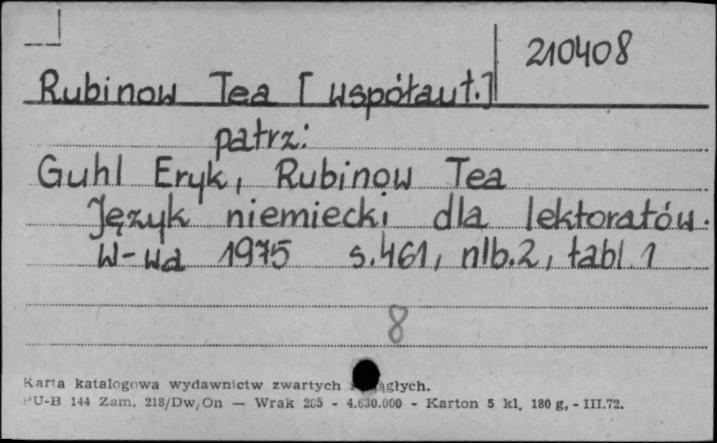 210408
Rubinow Tea [współaut.]
patrz:
Guhl Eryk, Rubinow Tea
Język niemiecki dla lektoratów.
W-wa 1975 s.461, nlb.2, tabl. 1
8
Karta katalogowa wydawnictw zwartych
PU-B 144 Zam. 218/Dw/On — Wrak 205 - 4.630.000 - Karton 5 kl. 180 g, - III.72.